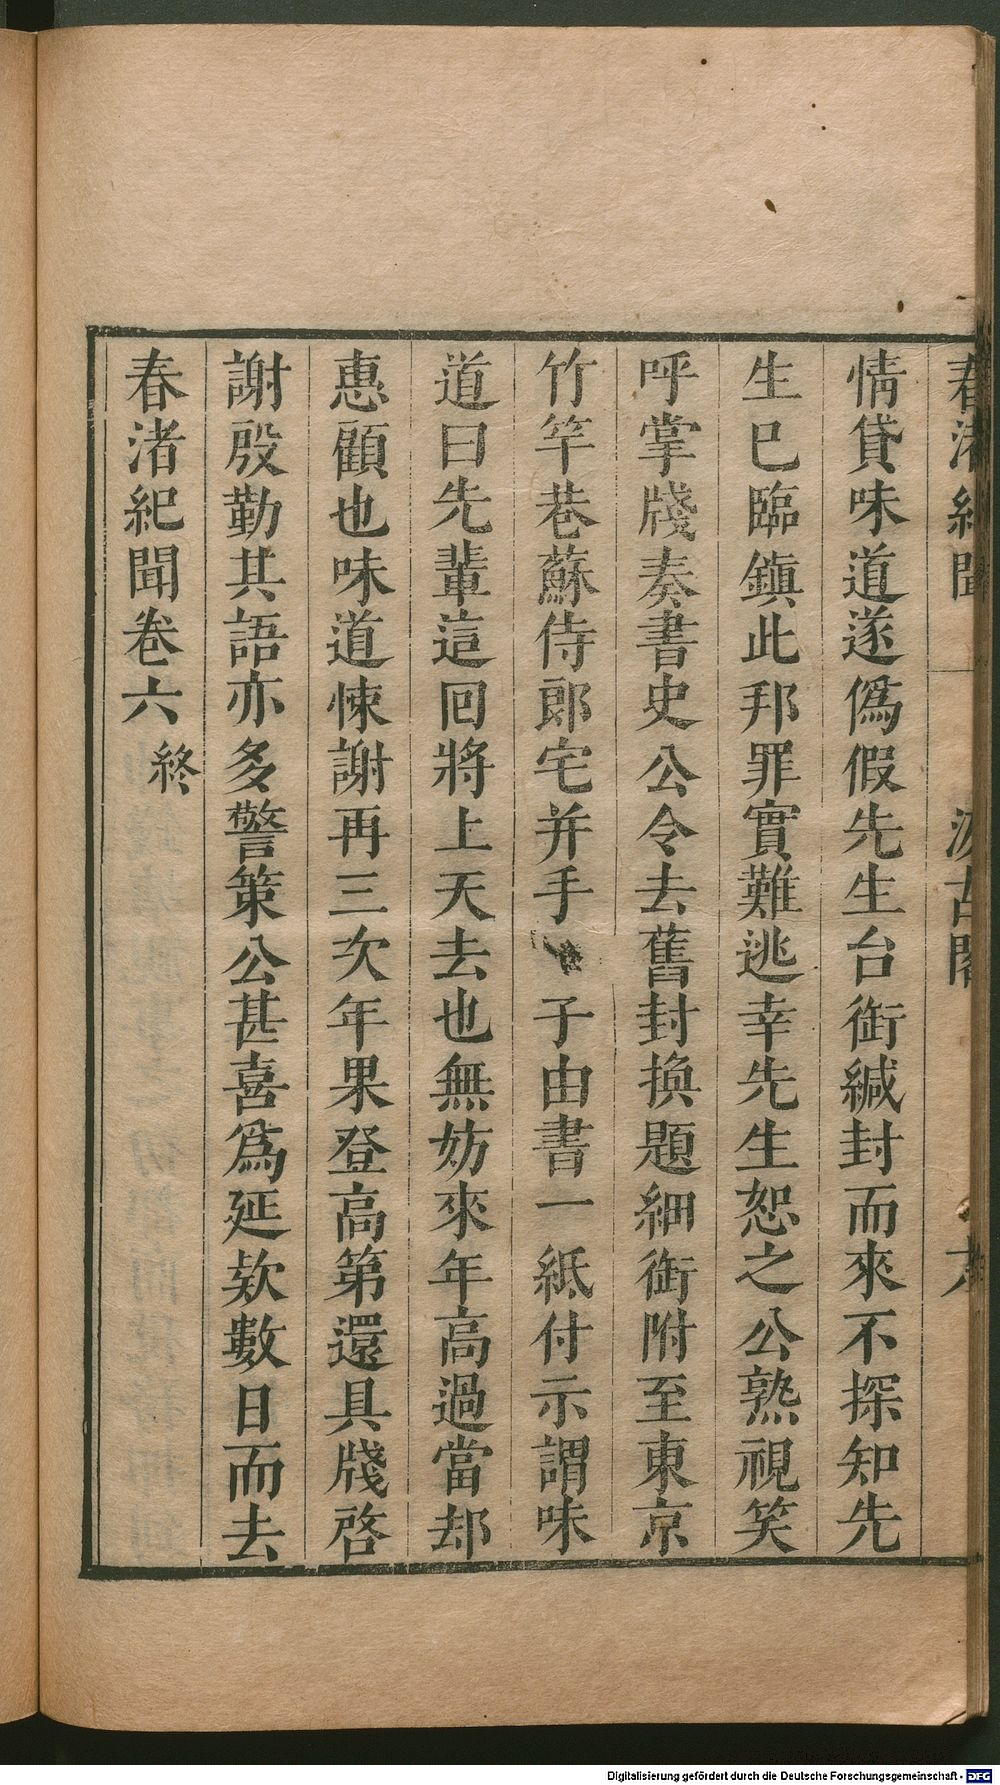 春渚紀聞
汲古閣
情貸味道遂僞假先生台銜緘封而來不探知先
生已臨鎮此邦罪實難逃幸先生恕之公熟視笑
呼掌牋奏書史公令去舊封換題細銜附至東京
竹竿巷蘇侍郎宅并手子由書一紙付示謂味
道曰先輩這回將上天去也無妨來年高過當却
惠顧也味道悚謝再三次年果登高第還具牋啓
謝殷勤其語亦多警策公甚喜爲延欵數日而去
春渚紀聞卷六終
Digitalisierung gefördert durch die Deutsche Forschungsgemeinschaft - DFG